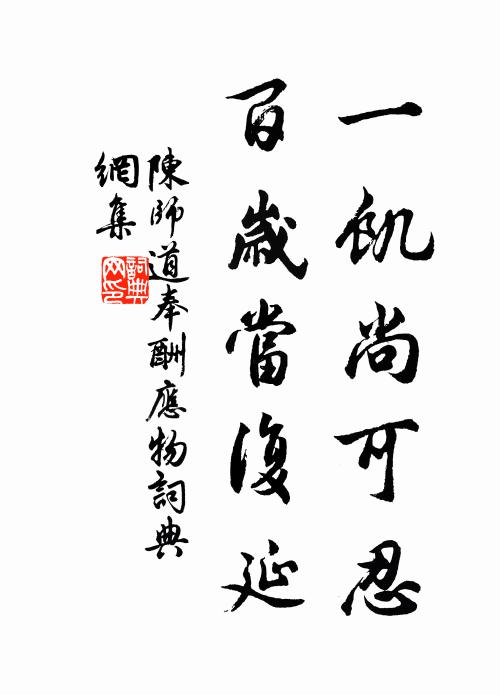 一飢尚可忍
百歲當復延
陳師道奉酬應物詞典
網集
詞典網印